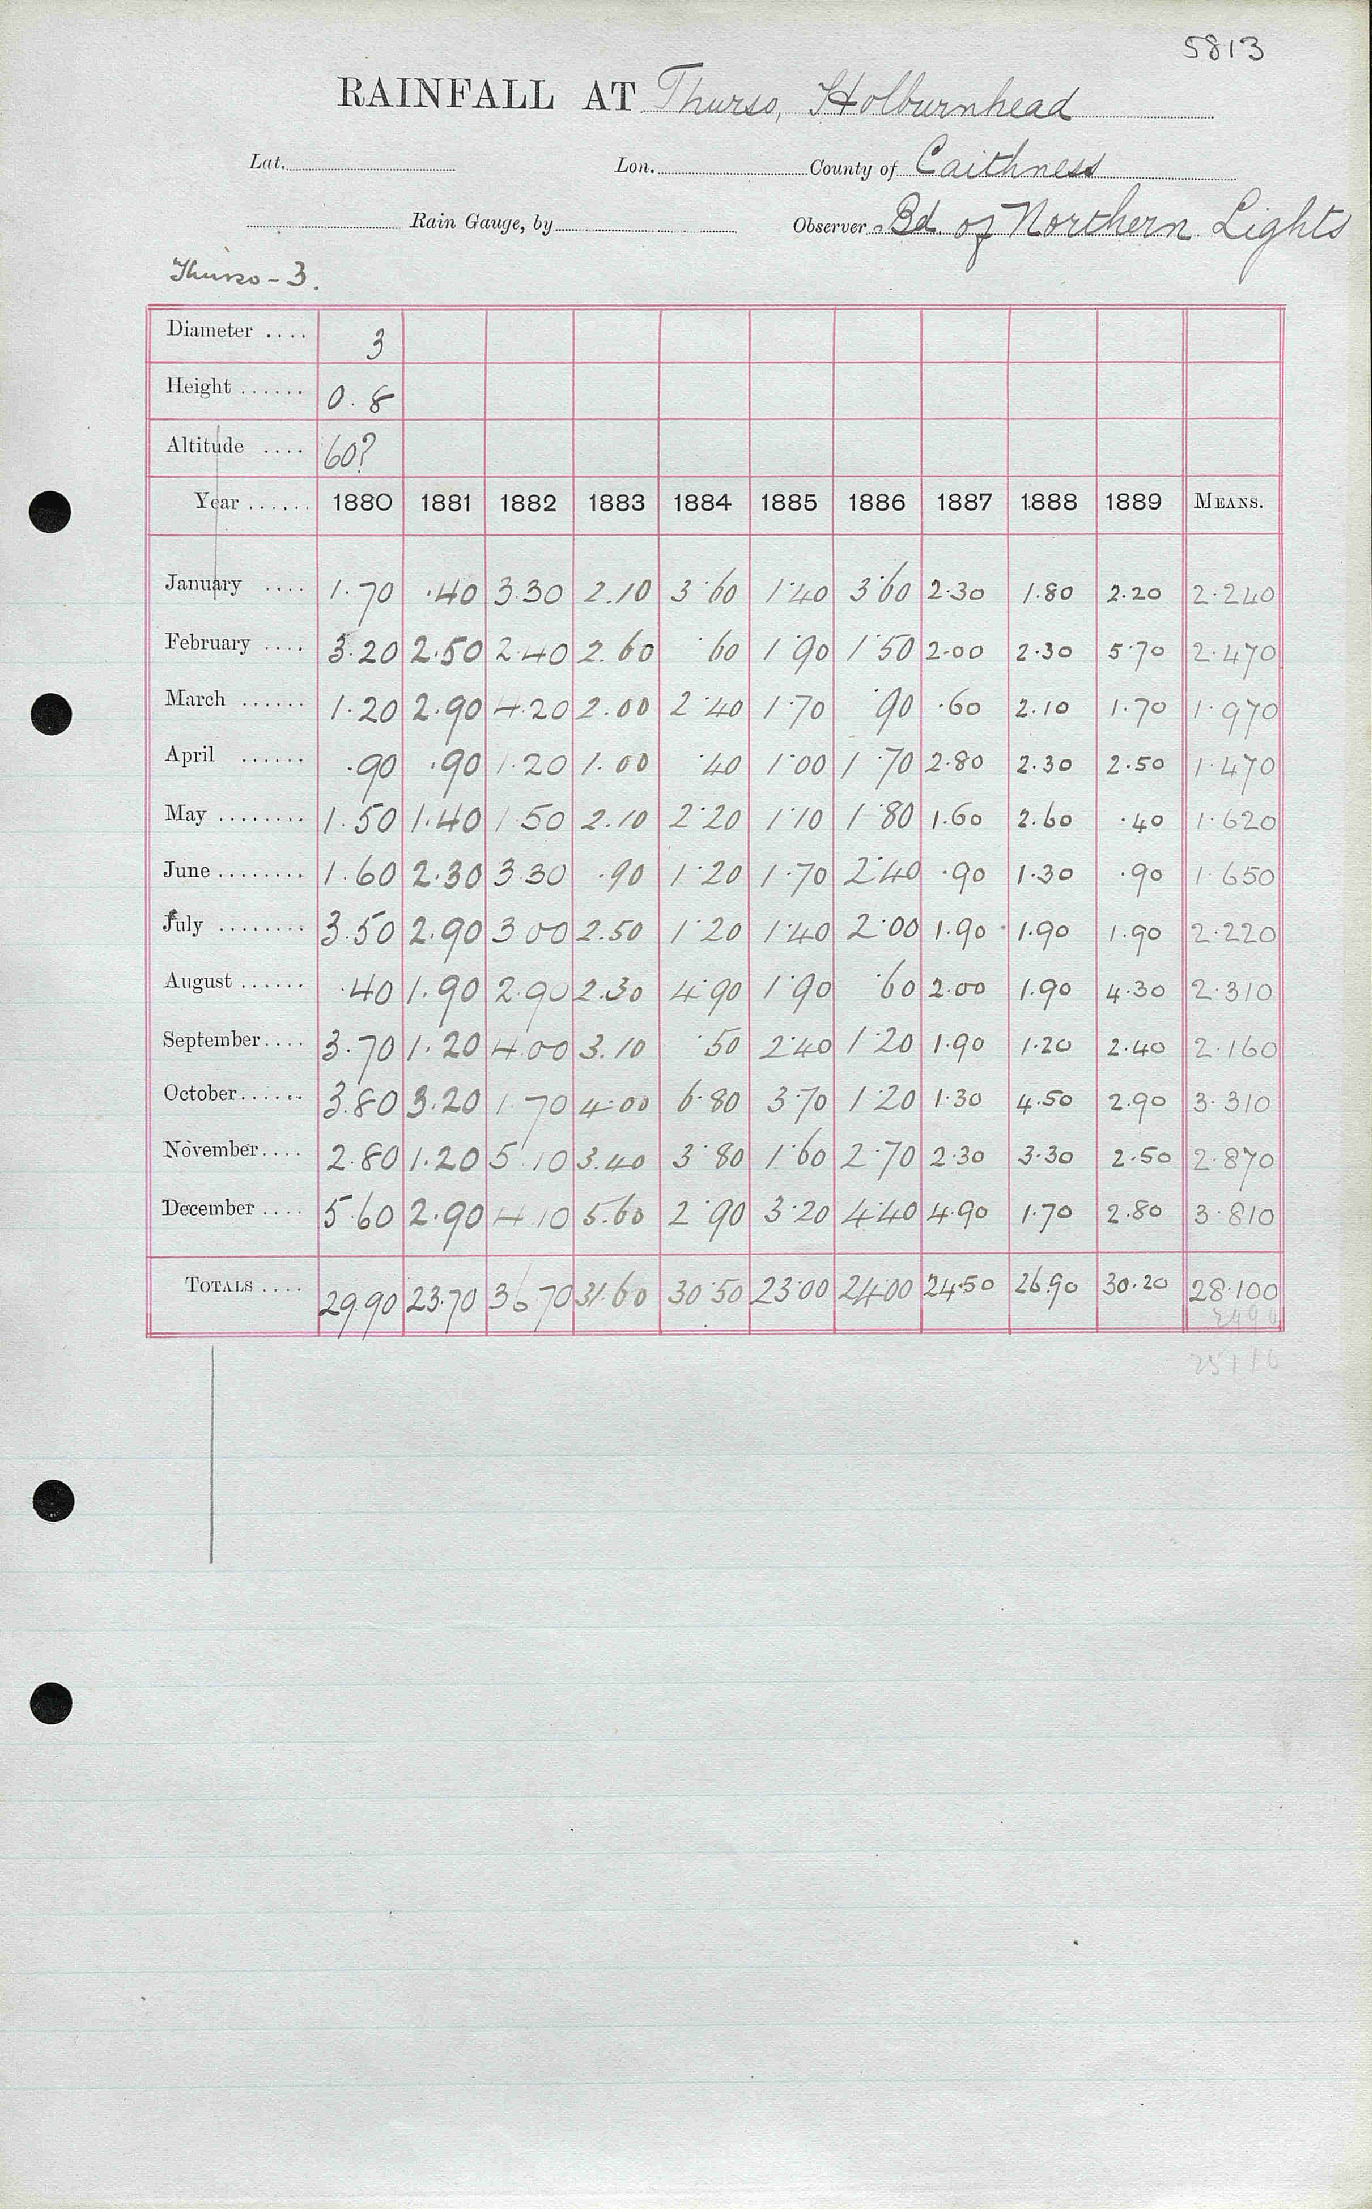 5813
RAINFALL AT Thurso, Holburnhead
Lat. Lon. County of Caithness
Rain Gauge, by Observer Bd. of Northern Lights
Thurso - 3.
Diameter .... 3
Height ...... 0.8
Altitude .... 60?
Year ...... 1880 1881 1882 1883 1884 1885 1886 1887 1888 1889 MEANS.
January .... 1.70 .40 3.30 2.10 3.60 1.40 3.60 2.30 1.80 2.20 2.240
February .... 3.20 2.50 2.40 2.60 .60 1.90 1.50 2.00 2.30 5.70 2.470
March ...... 1.20 2.90 4.20 2.00 2.40 1.70 .90 .60 2.10 1.70 1.970
April ...... .90 .90 1.20 1.00 .40 1.00 1.70 2.80 2.30 2.50 1.470
May ........ 1.50 1.40 1.50 2.10 2.20 1.10 1.80 1.60 2.60 .40 1.620
June ........ 1.60 2.30 3.30 .90 1.20 1.70 2.40 .90 1.30 .90 1.650
July ........ 3.50 2.90 3.00 2.50 1.20 1.40 2.00 1.90 1.90 1.90 2.220
August ...... .40 1.90 2.90 2.30 4.90 1.90 .60 2.00 1.90 4.30 2.310
September .... 3.70 1.20 4.00 3.10 .50 2.40 1.20 1.90 1.20 2.40 2.160
October ...... 3.80 3.20 1.70 4.00 6.80 3.70 1.20 1.30 4.50 2.90 3.310
November .... 2.80 1.20 5.10 3.40 3.80 1.60 2.70 2.30 3.30 2.50 2.870
December .... 5.60 2.90 4.10 5.60 2.90 3.20 4.40 4.90 1.70 2.80 3.810
TOTALS .... 29.90 23.70 36.70 31.60 30.50 23.00 24.00 24.50 26.90 30.20 28.100